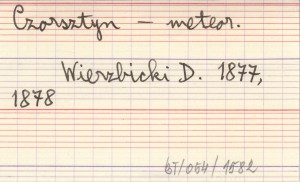 Czorsztyn – meteor.
Wierzbicki D. 1877,
1878
6T/054/1582